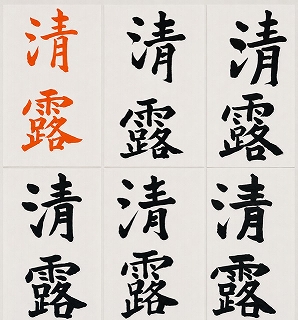 清露
清露
清露
清露
清露
清露